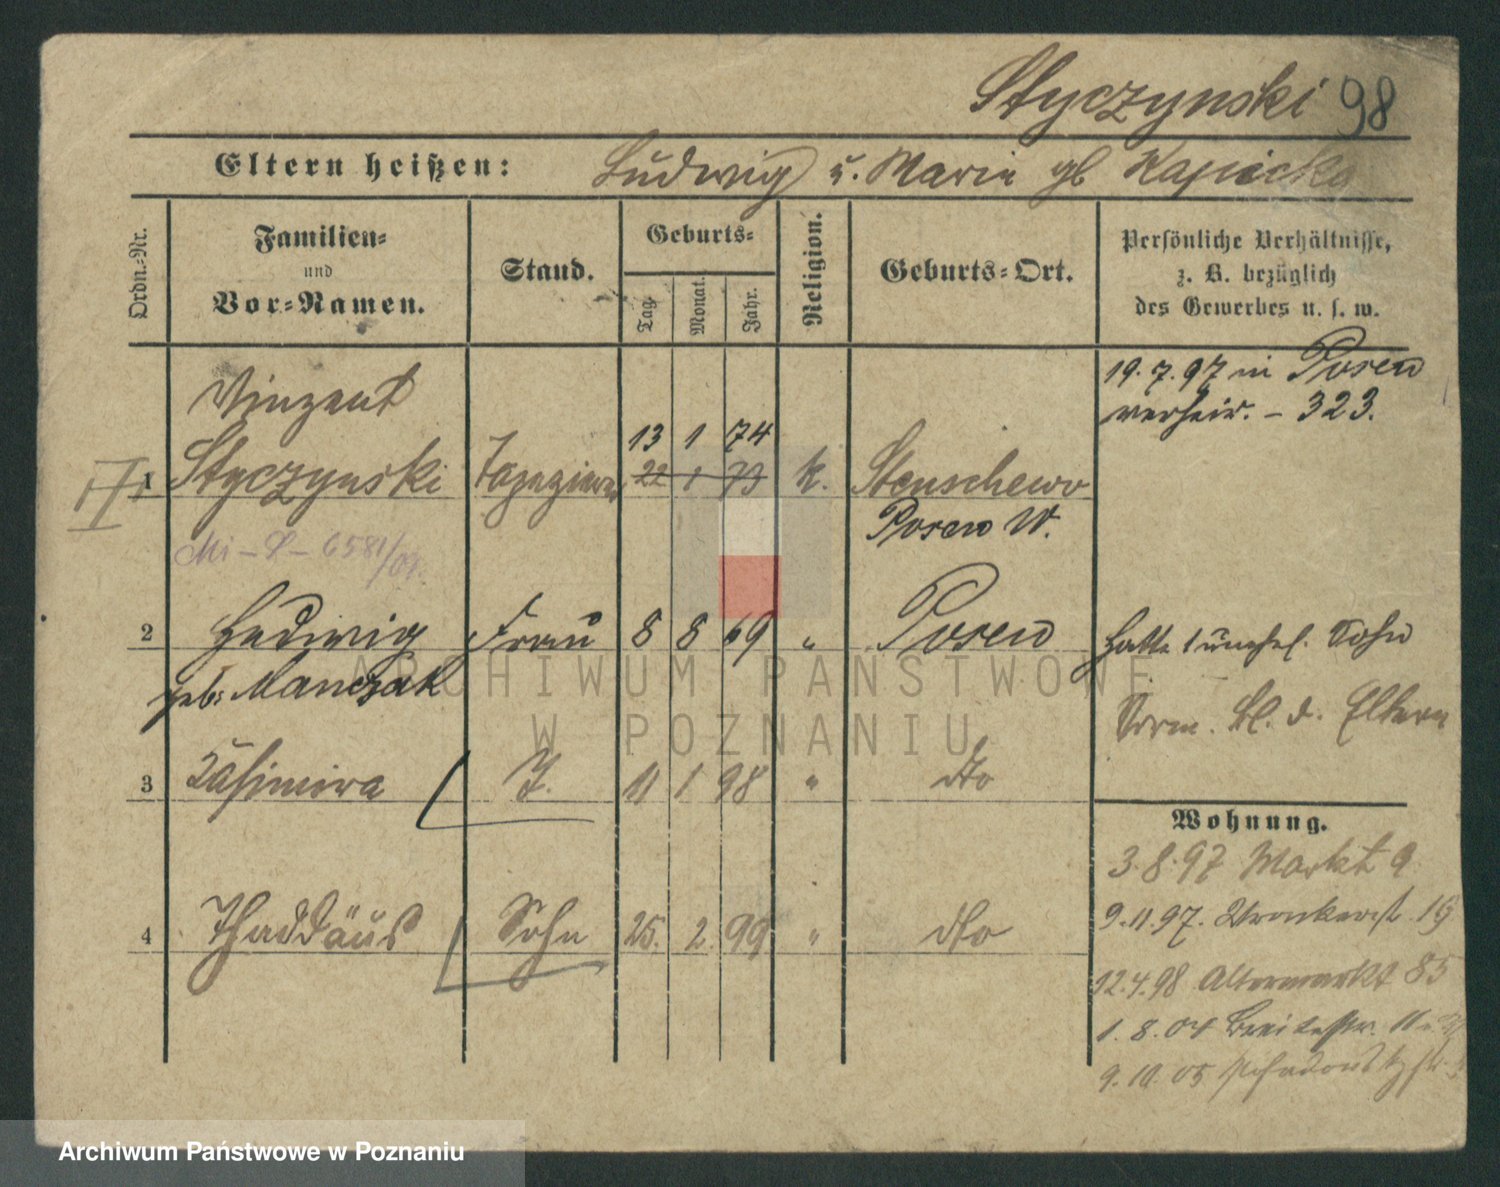 Styczynski 98
Eltern heißen: Ludwig u. Marie gb Kapicka
Ordn.-Nr.
Familien-
und
Vor-Namen.
Stand.
Geburts-
Tag.
Monat.
Jahr.
Religion.
Geburts-Ort.
Persönliche Verhältnisse,
z. B. bezüglich
des Gewerbes u. s. w.
19.7.97 in Posen
verheir. – 323.
Vinzent
13 1 74
II 1 Styczynski Tapezierer 22 1 73 k. Stenschewo
Posen W.
Mi – 6581/04.
2 Hedwig Frau 8 8 69 " Posen
geb. Manczak
hatte 1 unehel. Sohn
Vorm. d. Eltern
3 Kasimira T. 11 1 98 " dto
Wohnung.
3.8.97 Markt 9
9.11.97. Wronkerst. 19
4 Thaddäus Sohn 25. 2. 99 " dto
12.4.98 Altermarkt 85
1.8.04 Breitestr. 11
9.10.05
ARCHIWUM PAŃSTWOWE
W POZNANIU
Archiwum Państwowe w Poznaniu